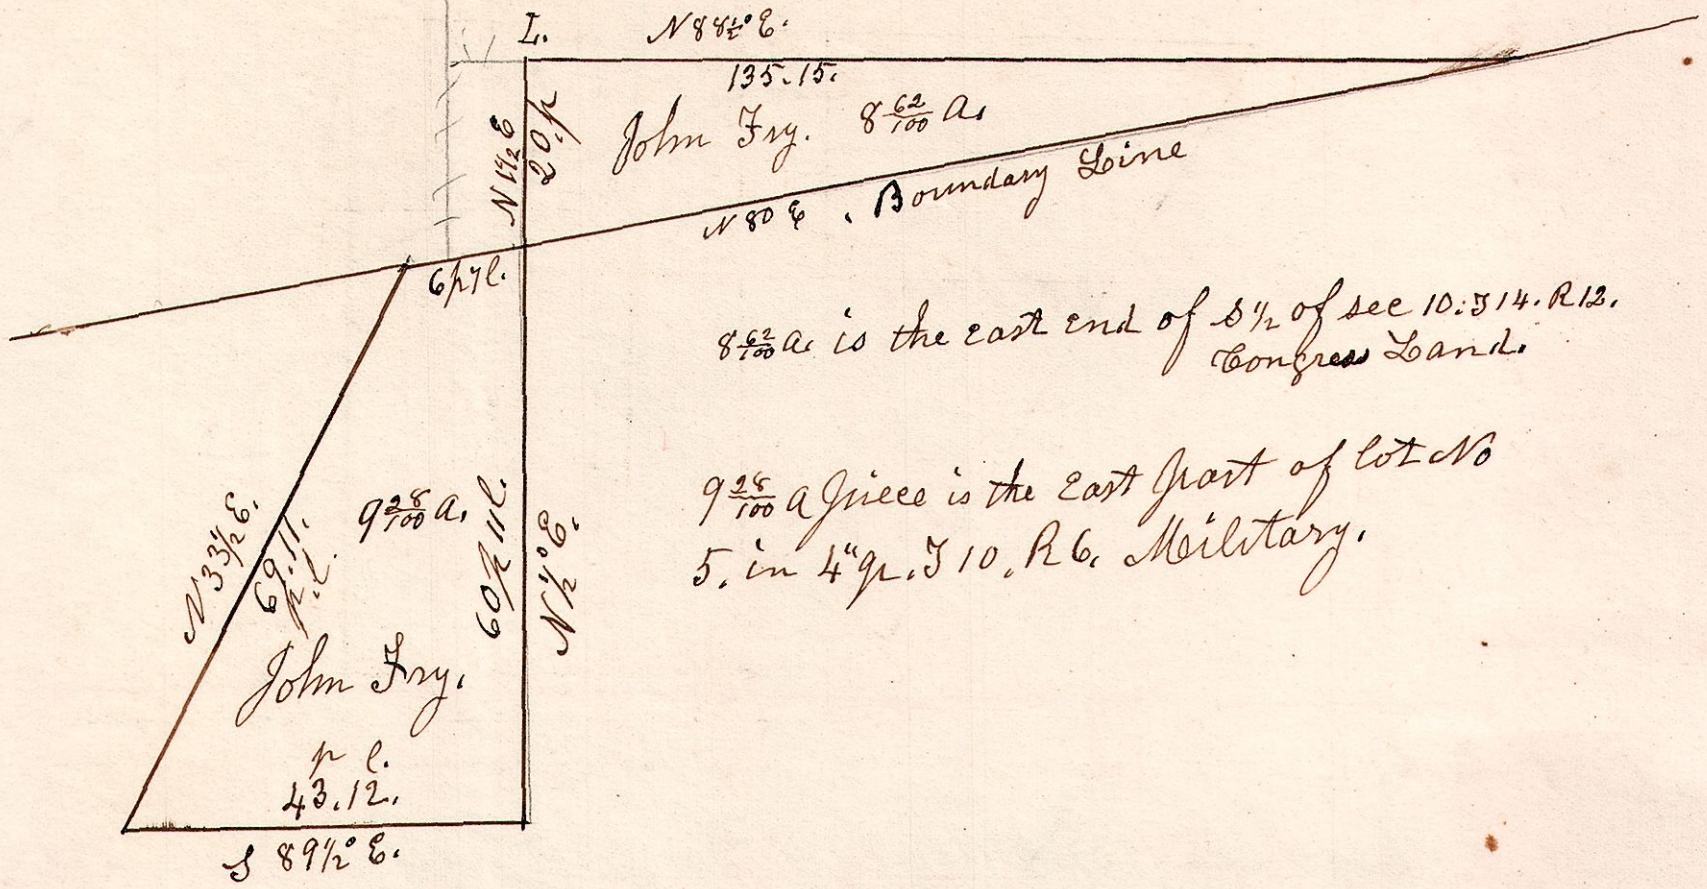 L. N 88½° E.
135.15.
N 1½ E
20.p
John Fry. 8 62/100 a.
N 80 E . Boundary Line
6p7l.
8 62/100 a. is the east end of S ½ of sec 10: T 14. R 12.
Congress Land.
9 28/100 a piece is the East part of lot No
5. in 4" qr. T 10. R 6. Military.
N 33½ E.
69.11.
p. l.
9 28/100 a.
60p 11l.
N ½° E.
John Fry.
p l.
43.12.
S 89½° E.